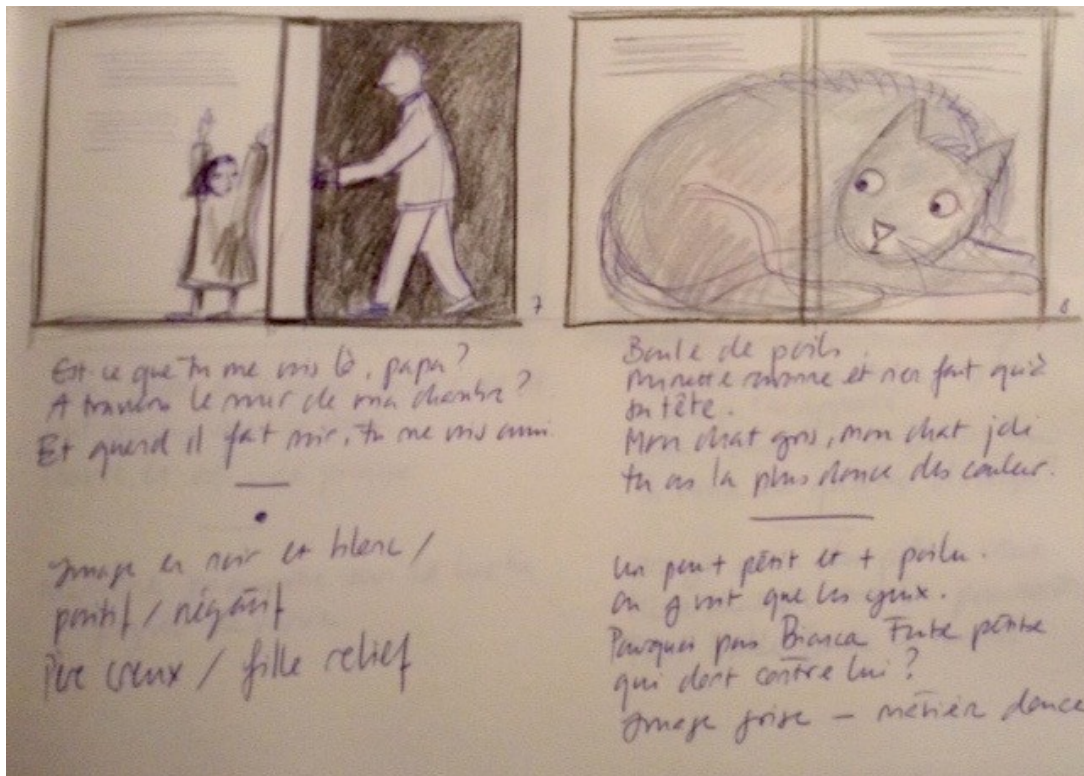 7
Est-ce que tu me vois là, papa ?
A travers le mur de ma chambre ?
Et quand il fait noir, tu me vois aussi
Image en noir et blanc /
positif / négatif
Père creux / fille relief
8
Boule de poils
Minette ronronne et n'en fait qu'à
sa tête.
Mon chat gris, mon chat joli
tu as la plus douce des couleur.
Un peu + petit et + poilu.
on y voit que les yeux.
Pourquoi pas Bianca toute petite
qui dort contre lui ?
Image grise — matière douce